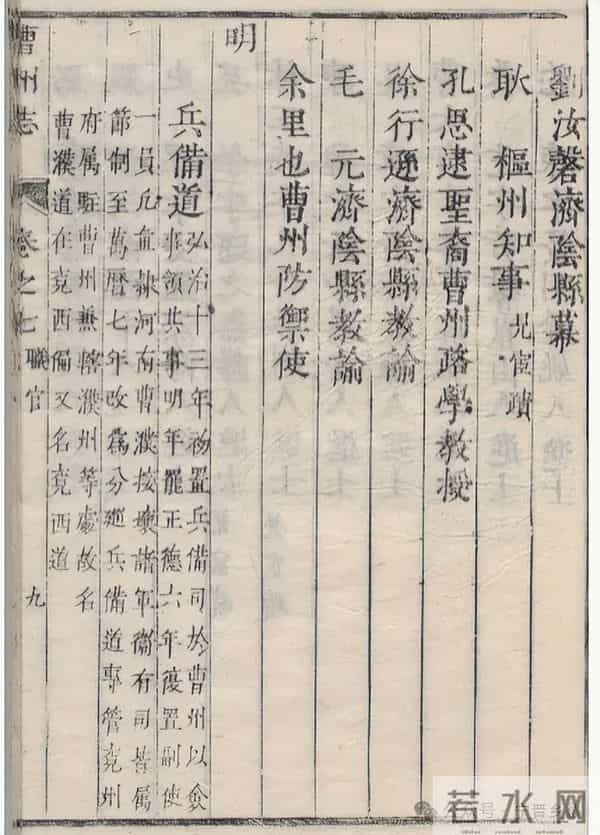 劉汝礊濟陰縣幕
耿　樞州知事見宦蹟
孔思逮聖裔曹州路學教授
徐行遜濟陰縣教諭
毛　元濟陰縣教諭
余里也曹州防禦使
明
兵備道弘治十三年初置兵備司於曹州以僉
事領其事明年罷正德六年復置副使
一員凡直隸河南曹濮接壤諸軍衛有司皆屬
節制至萬曆七年改為分廵兵備道專管兖州
府属駐曹州兼轄濮州等處故名
曹濮道在兖西偏又名兖西道
曹州志
卷之七
職官
九
公众号
若水网